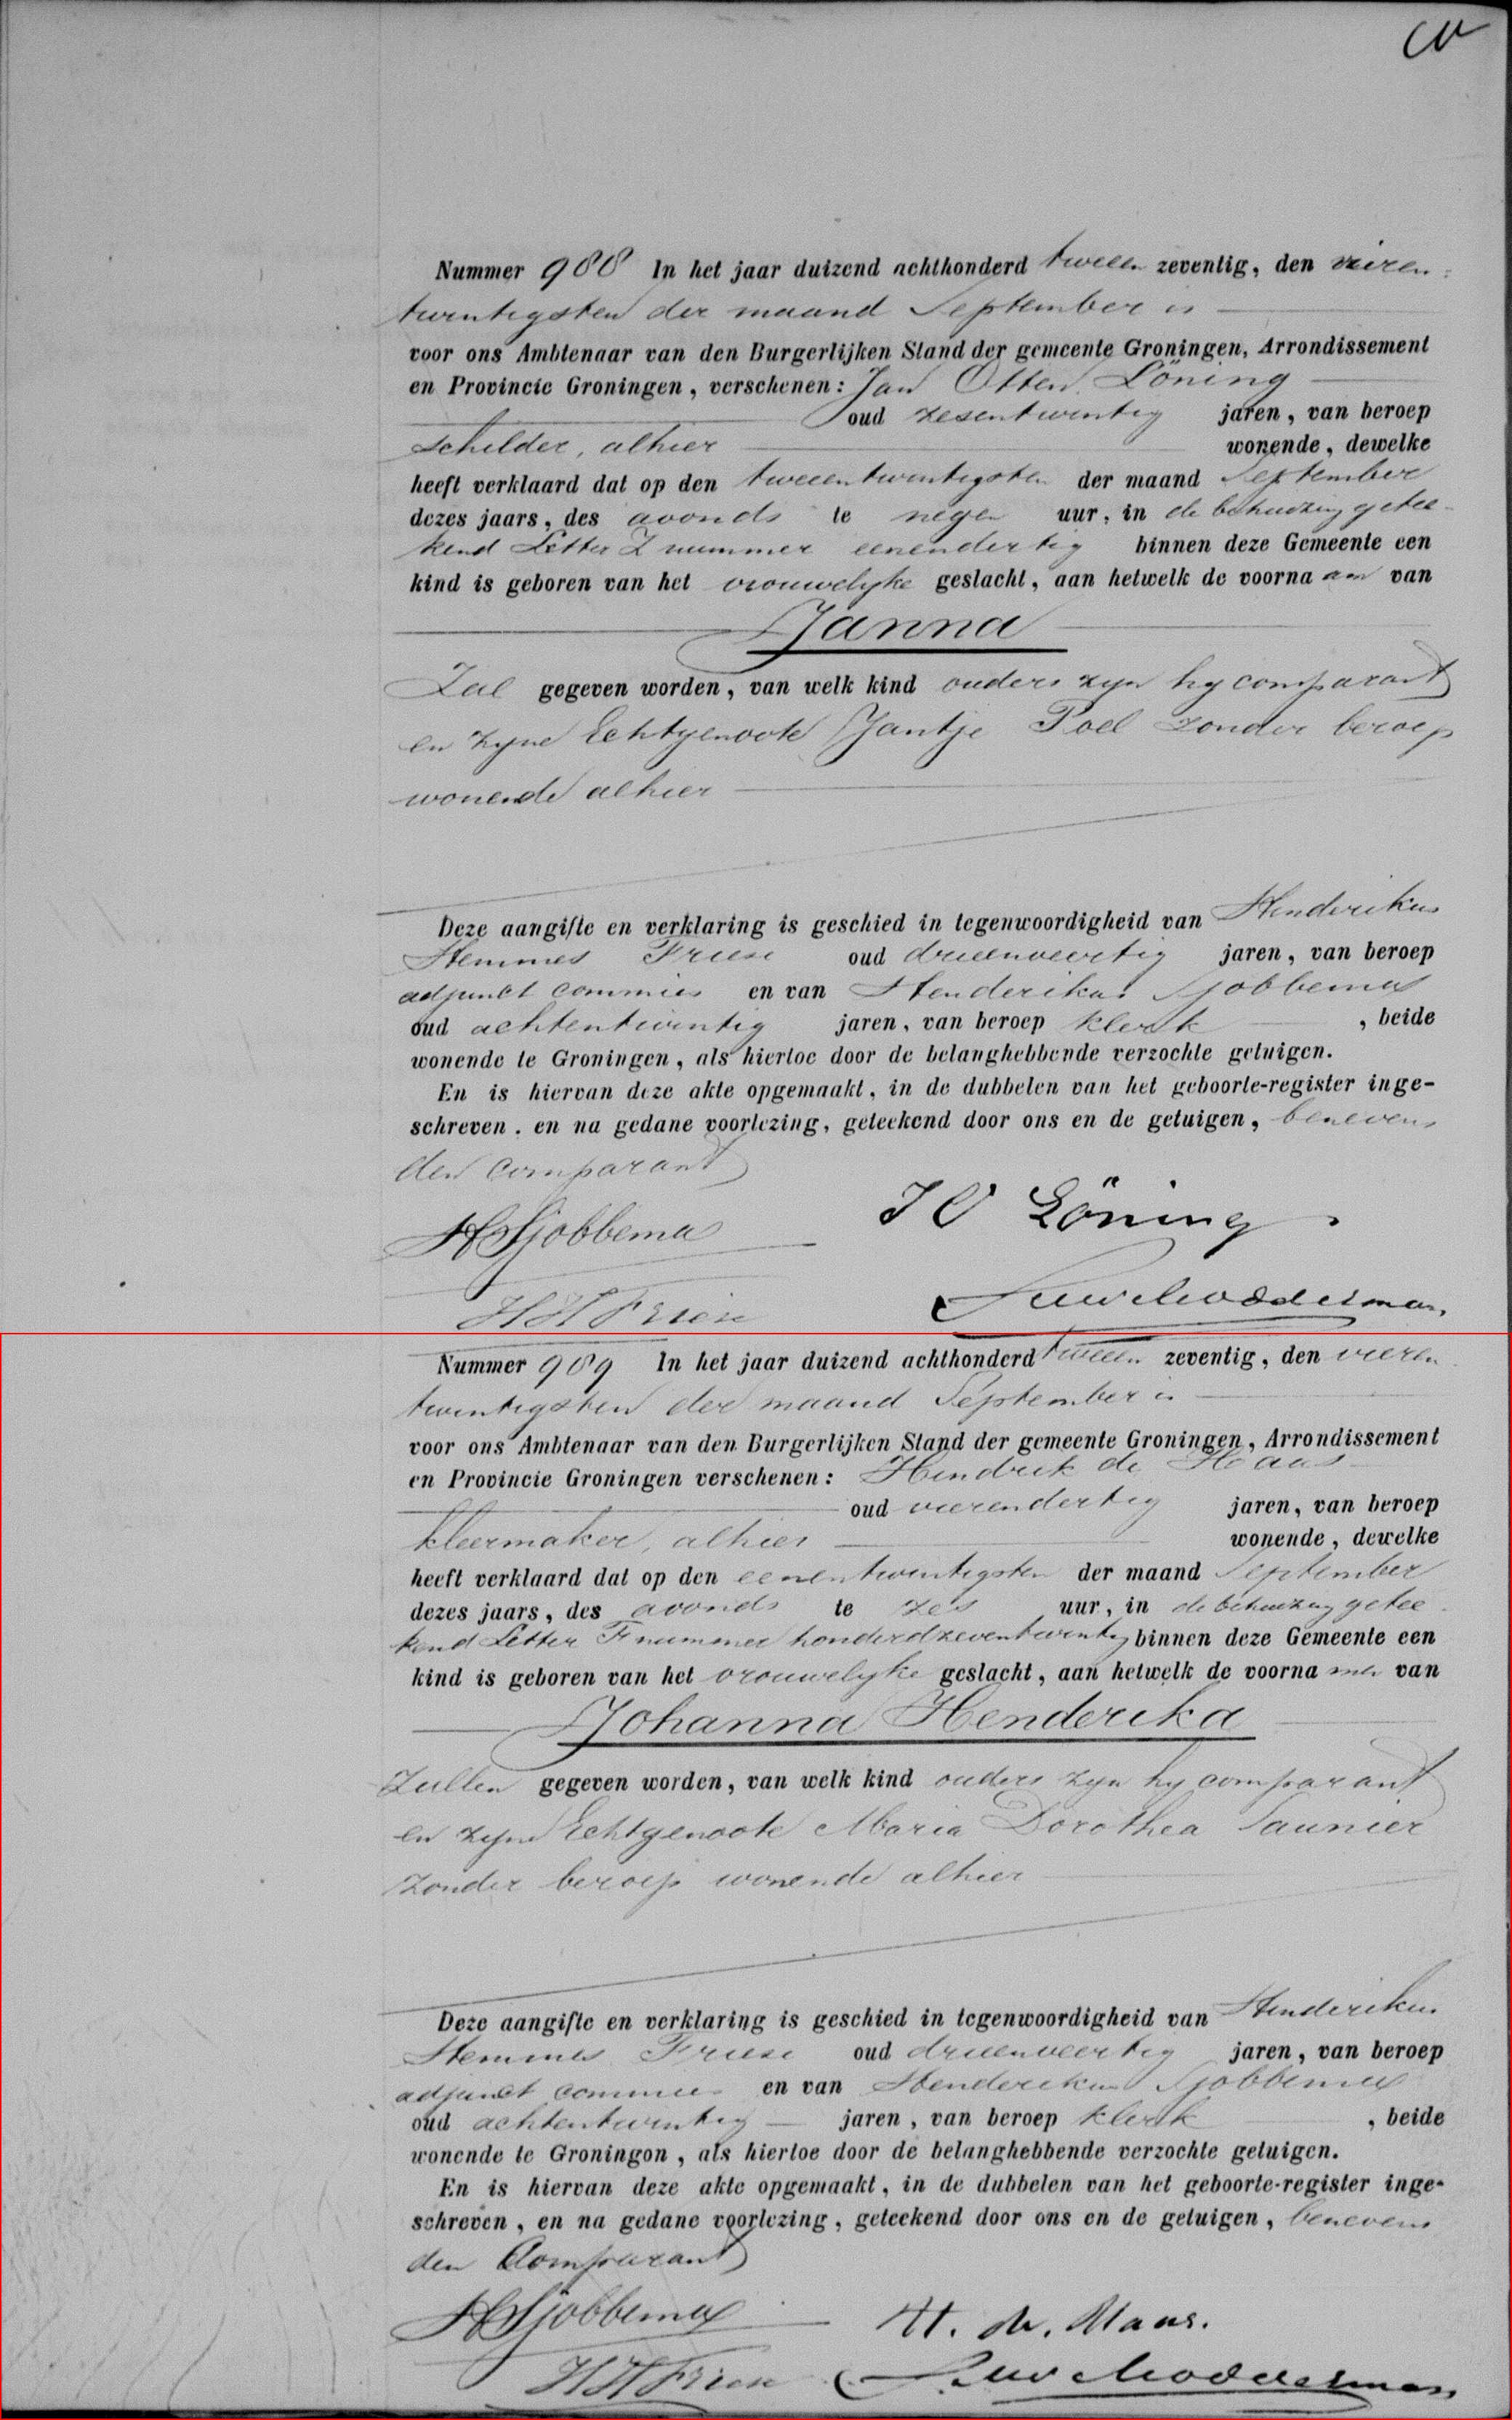 Nummer 988 In het jaar duizend achthonderd tweeen zeventig, den vieren-
twintigsten der maand September is
voor ons Ambtenaar van den Burgerlijken Stand der gemeente Groningen, Arrondissement
en Provincie Groningen, verschenen: Jan Otten Löning
oud zesentwintig jaren, van beroep
schilder, alhier wonende, dewelke
heeft verklaard dat op den tweeentwintigsten der maand September
dezes jaars, des avonds te negen uur, in de behuizing getee-
kend Letter Z nummer eenendertig binnen deze Gemeente een
kind is geboren van het vrouwelyke geslacht, aan hetwelk de voorna am van
Janna
Zal gegeven worden, van welk kind ouders zyn hy comparant
en zyne Echtgenoote Jantje Poel zonder beroep
wonende alhier
Deze aangifte en verklaring is geschied in tegenwoordigheid van Henderikus
Hemmes Friese oud drieenveertig jaren, van beroep
adjunct commies en van Henderikus Sjobbema
oud achtentwintig jaren, van beroep klerk , beide
wonende te Groningen, als hiertoe door de belanghebbende verzochte getuigen.
En is hiervan deze akte opgemaakt, in de dubbelen van het geboorte-register inge-
schreven. en na gedane voorlezing, geteekend door ons en de getuigen, benevens
den comparant
HSjobbema JO Löning
HHFriese Modderman
Nummer 989 In het jaar duizend achthonderd tweeen zeventig, den vieren
twintigsten der maand September is
voor ons Ambtenaar van den Burgerlijken Stand der gemeente Groningen, Arrondissement
en Provincie Groningen verschenen: Hendrik de Haas
oud vierendertig jaren, van beroep
kleermaker, alhier wonende, dewelke
heeft verklaard dat op den eenentwintigsten der maand September
dezes jaars, des avonds te zes uur, in de behuizing getee
kend Letter F nummer honderdzeventwintig binnen deze Gemeente een
kind is geboren van het vrouwelyke geslacht, aan hetwelk de voorna men van
Johanna Henderika
Zullen gegeven worden, van welk kind ouders zyn hy comparant
en zyne Echtgenoote Maria Dorothea Saunier
zonder beroep wonende alhier
Deze aangifte en verklaring is geschied in tegenwoordigheid van Henderikus
Hemmes Friese oud drieenveertig jaren, van beroep
adjunct commies en van Henderikus Sjobbema
oud achtentwintig jaren, van beroep klerk , beide
wonende te Groningon, als hiertoe door de belanghebbende verzochte getuigen.
En is hiervan deze akte opgemaakt, in de dubbelen van het geboorte-register inge-
schreven, en na gedane voorlezing, geteekend door ons en de getuigen, benevens
den Comparant
HSjobbema H. de. Haas.
HHFriese Modderman